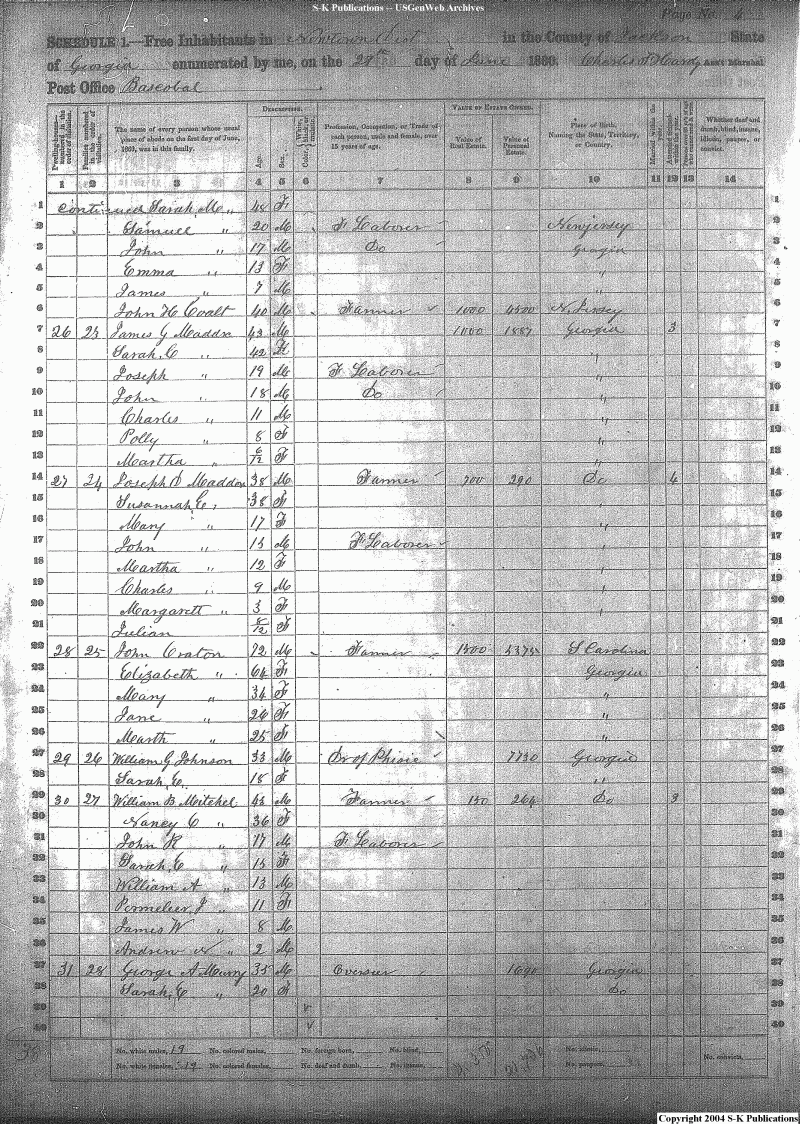 S-K Publications -- USGenWeb Archives
Page No. 4
SCHEDULE 1.—Free Inhabitants in Newtown Dist in the County of Jackson State
of Georgia enumerated by me, on the 27th day of June 1860. Charles S Hardy Ass't Marshal
Post Office Bascobal
Dwelling-houses— numbered in the order of visitation.
Families numbered in the order of visitation.
The name of every person whose usual place of abode on the first day of June, 1860, was in this family.
DESCRIPTION.
Age.
Sex.
Color,
Profession, Occupation, or Trade of each person, male and female, over 15 years of age.
VALUE OF ESTATE OWNED.
Value of Real Estate.
Value of Personal Estate.
Place of Birth, Naming the State, Territory, or Country.
Married within the year.
Whether deaf and dumb, blind, insane, idiotic, pauper, or convict.
1 2 3 4 5 6 7 8 9 10 11 12 13 14
1 continued Sarah M " 48 F 1
2 Samuel " 20 M F Laborer New jersey 2
3 John " 17 M Do Georgia 3
4 Emma " 13 F " 4
5 James " 7 M " 5
6 John H Coalt 40 M Farmer 1000 4500 N. Jersey 6
7 26 23 James G Maddox 43 M 1000 1887 Georgia 3 7
8 Sarah C " 42 F " 8
9 Joseph " 19 M F Laborer " 9
10 John " 18 M Do " 10
11 Charles " 11 M " 11
12 Polly " 8 F " 12
13 Martha " 6/12 F " 13
14 27 24 Joseph Maddox 38 M Farmer 700 290 Do 4 14
15 Susannah C " 38 F " 15
16 Mary " 17 F " 16
17 John " 15 M F Laborer " 17
18 Martha " 12 F " 18
19 Charles " 9 M " 19
20 Margarett " 3 F " 20
21 Julian 8/12 F 21
22 28 25 John Craton 72 M Farmer 1500 5375 S Carolina 22
23 Elizabeth " 64 F Georgia 23
24 Mary " 34 F " 24
25 Jane " 26 F " 25
26 Marth " 25 F " 26
27 29 26 William G Johnson 33 M Dr of Phisic 7730 Georgia 27
28 Sarah C 18 F " 28
29 30 27 William B Mitchel 45 M Farmer 150 264 Do 3 29
30 Nancy C " 36 F 30
31 John R " 17 M F Laborer 31
32 Sarah C " 15 F 32
33 William A " 13 M 33
34 Permelier J " 11 F 34
35 James W " 8 M 35
36 Andrew N " 2 M 36
37 31 28 George A Murry 35 M Oversier 1690 Georgia 37
38 Sarah C " 20 F Do 38
39 39
40 40
No. white males, 19 No. colored males, No. foreign born, No. blind, No. idiotic,
No. white females, 19 No. colored females, No. deaf and dumb, No. insane, No. paupers, No. convicts,
Copyright 2004 S-K Publications